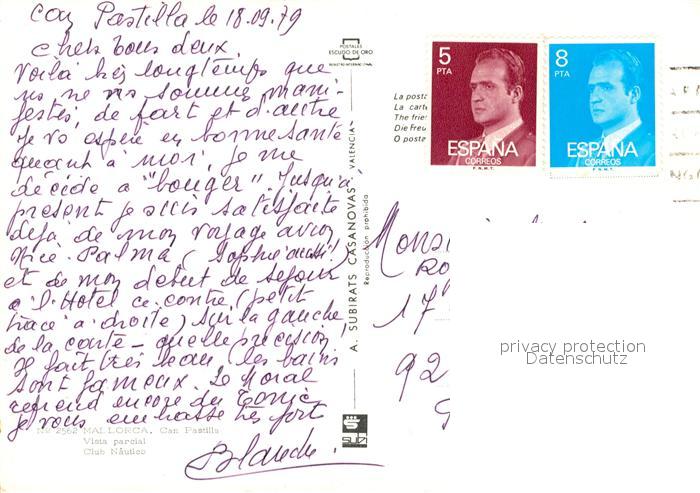 Can Pastilla le 18.09.79
chers vous deux.
Voilà très longtemps que
ns ne ns sommes mani-
festés, de part et d'autre
Je vs espère en bonne santé
quant à moi, je me
décide à "bouger". Jusqu'à
présent je suis satisfaite
déjà de mon voyage avion
Nice. Palma (Sophie aussi!)
et de mon début de séjour
à l'Hotel ci contre (petit
tracé à droite) sur la gauche
de la carte - quelle précision,
Il fait très beau, les bains
sont fameux. Le Moral
reprend encore du Tonic
je vous embrasse très fort
Blanche.
Nº 2562 MALLORCA. Can Pastilla
Vista parcial
Club Náutico
POSTALES
ESCUDO DE ORO
REGISTRO INTERNACIONAL
A. SUBIRATS CASANOVAS - VALENCIA
Reproducción prohibida
subi
La posta
La carte
The frie
Die Freu
O posta
5
PTA
ESPAÑA
CORREOS
F.N.M.T.
8
PTA
ESPAÑA
CORREOS
F.N.M.T.
Monsi
17
92
privacy protection
Datenschutz